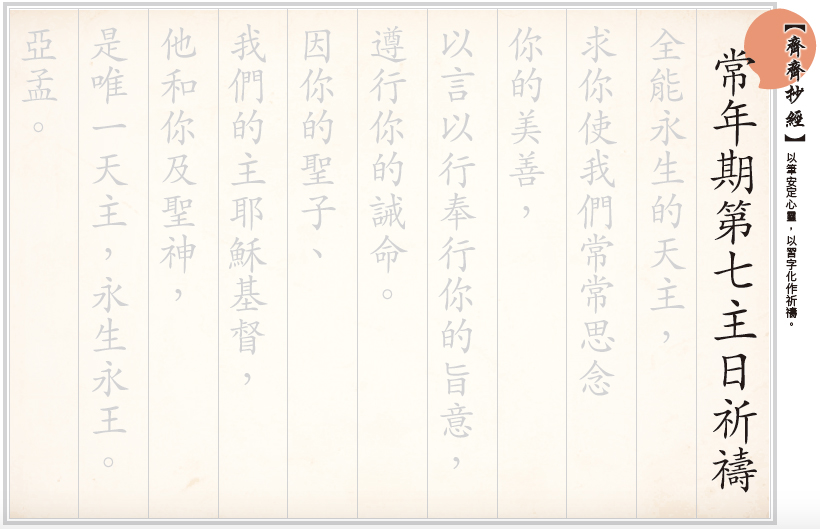 【齊齊抄經】以筆安定心靈，以習字化作祈禱。
常年期第七主日祈禱
全能永生的天主，
求你使我們常常思念
你的美善，
以言以行奉行你的旨意，
遵行你的誡命。
因你的聖子、
我們的主耶穌基督，
他和你及聖神，
是唯一天主，永生永王。
亞孟。